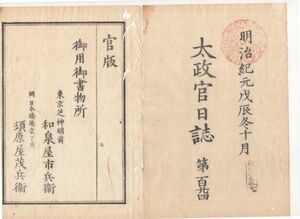 明治紀元戊辰冬十月
太政官日誌
第百
官版
御用御書物所
東京芝神明前
和泉屋市兵衛
同日本橋通壱丁目
須原屋茂兵衛